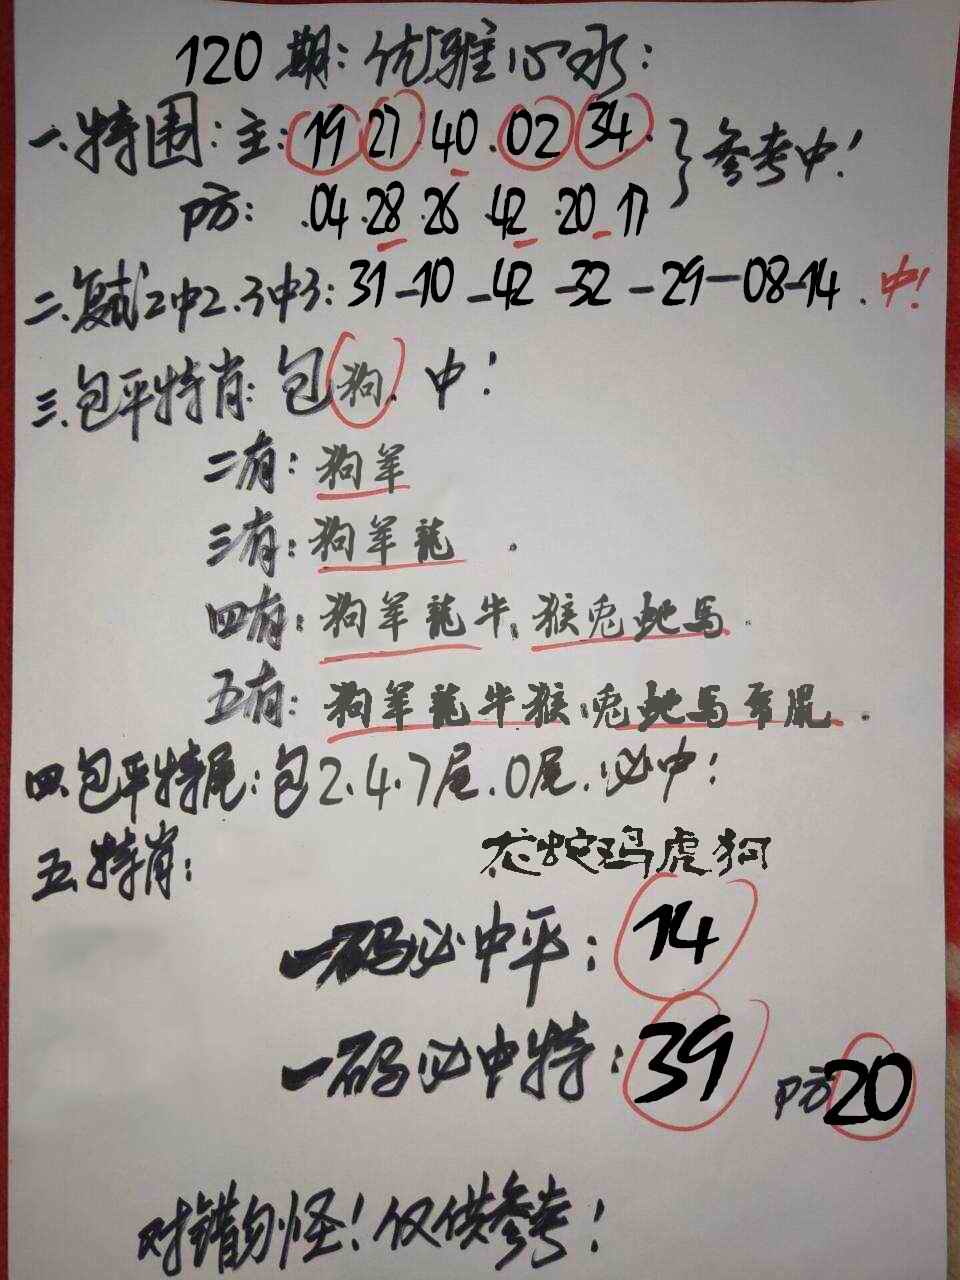 120期:优雅心水:
一.特围:主:19 27 40.02 34.}参考中!
防:.04.28.26.42.20.17
二.复式2中2.3中3:31-10-42-32-29-08-14.中!
三.包平特肖:包狗.中!
二有:狗羊
三有:狗羊龍.
四有:狗羊龍牛.猴兔蛇馬.
五有:狗羊龍牛猴.兔蛇馬鼠.
四.包平特尾:包2.4.7尾.0尾.必中!
五.特肖:
龙蛇鸡虎狗
一码必中平:14
一码必中特:39 防20
对错勿怪!仅供参考!